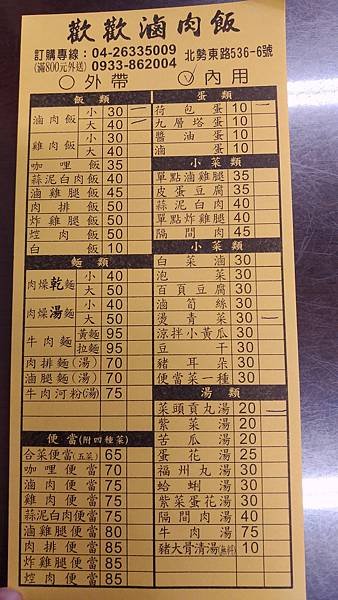 歡歡滷肉飯
訂購專線：04-26335009
(滿800元外送) 0933-862004
北勢東路536-6號
外帶
內用
飯類
滷肉飯 小 30 一
大 40 一
雞肉飯 小 30
大 40
咖哩飯 35
蒜泥白肉飯 40
滷雞腿飯 50
肉排飯 50
炸雞腿飯 50
焢肉飯 50
白飯 10
麵類
肉燥乾麵 小 40
大 50
肉燥湯麵 小 40
大 50
牛肉麵 黃麵 95
拉麵 95
肉排麵(湯) 70
滷腿麵(湯) 70
牛肉河粉(湯) 75
便當(附四種菜)
合菜便當(五菜) 65
咖哩便當 70
滷肉便當 75
雞肉便當 75
蒜泥白肉便當 75
滷雞腿便當 80
肉排便當 85
炸雞腿便當 85
焢肉便當 85
蛋類
荷包蛋 10 一
九層塔蛋 10
醬油蛋 10
滷蛋 10
小菜類
單點滷雞腿 35
皮蛋豆腐 35
蒜泥白肉 40
單點炸雞腿 40
隔間肉 45
小菜類
白菜滷 30
泡菜 30
百頁豆腐 30
滷筍絲 30
燙青菜 30 一
涼拌小黃瓜 30
豆干 30
豬耳朵 30
便當菜一種 30
湯類
菜頭貢丸湯 20 一
紫菜湯 20
苦瓜湯 20
蛋花湯 25
福州丸湯 30
蛤蜊湯 30
紫菜蛋花湯 30
隔間肉湯 40
牛肉湯 75
豬大骨清湯(無料) 10